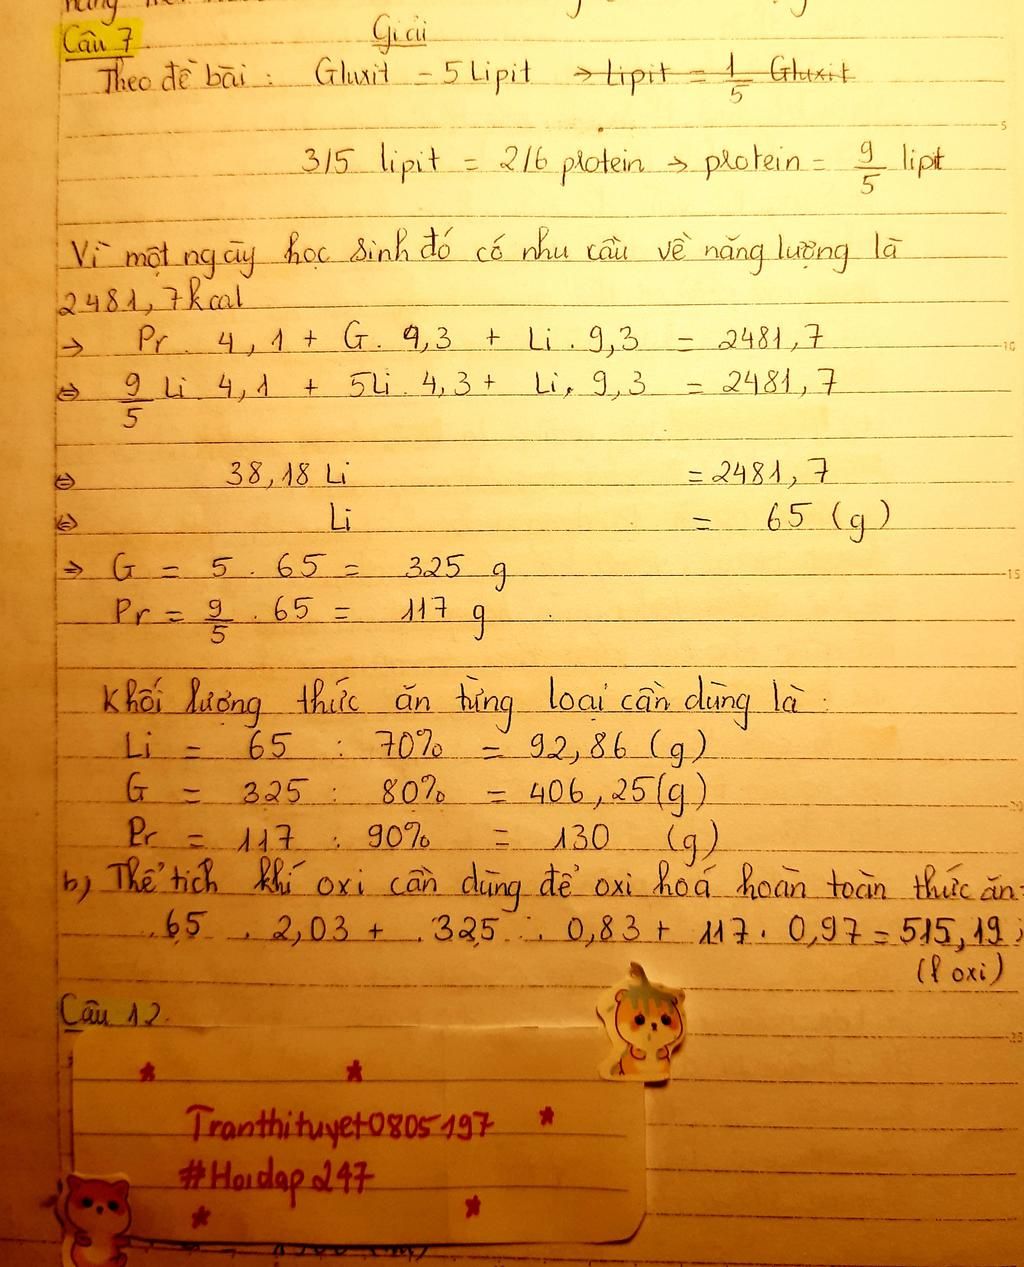 Câu 7
Giải
Theo đề bài : Gluxit = 5 Lipit → Lipit = 1/5 Gluxit
3/5 lipit = 2/6 protein → protein = 9/5 lipit
Vì một ngày học sinh đó có nhu cầu về năng lượng là
2481,7 kcal
→ Pr . 4,1 + G . 4,3 + Li . 9,3 = 2481,7
⇔ 9/5 Li 4,1 + 5Li . 4,3 + Li . 9,3 = 2481,7
⇔ 38,18 Li = 2481,7
⇔ Li = 65 (g)
⇒ G = 5 . 65 = 325 g
Pr = 9/5 . 65 = 117 g
Khối lượng thức ăn từng loại cần dùng là :
Li = 65 : 70% = 92,86 (g)
G = 325 : 80% = 406,25(g)
Pr = 117 : 90% = 130 (g)
b) Thể tích khí oxi cần dùng để oxi hoá hoàn toàn thức ăn :
65 . 2,03 + 325 . 0,83 + 117 . 0,97 = 515,19
(l oxi)
Câu 12.
Tranthituyet0805197
#Hoidap247